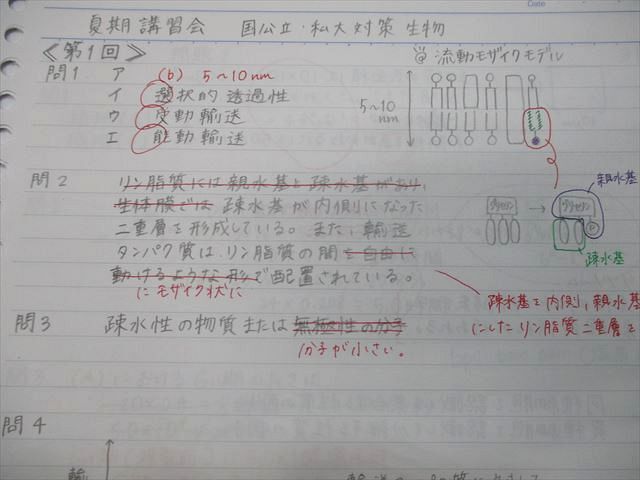 Date
夏期講習会 国公立・私大対策 生物
≪第1回≫
問1 ア (b) 5~10nm
イ 選択的透過性
ウ 受動輸送
エ 能動輸送
流動モザイクモデル
5~10
nm
問2 リン脂質には親水基と疎水基があり、
生体膜では 疎水基が内側になった
二重層を形成している。また、輸送
タンパク質は、リン脂質の間を自由に
動けるような形で配置されている。
にモザイク状に
グリセリン → グリセリン
P
親水基
疎水基
疎水基を内側、親水基
にしたリン脂質二重層を
問3 疎水性の物質または無極性の分子
分子が小さい。
問4
輸